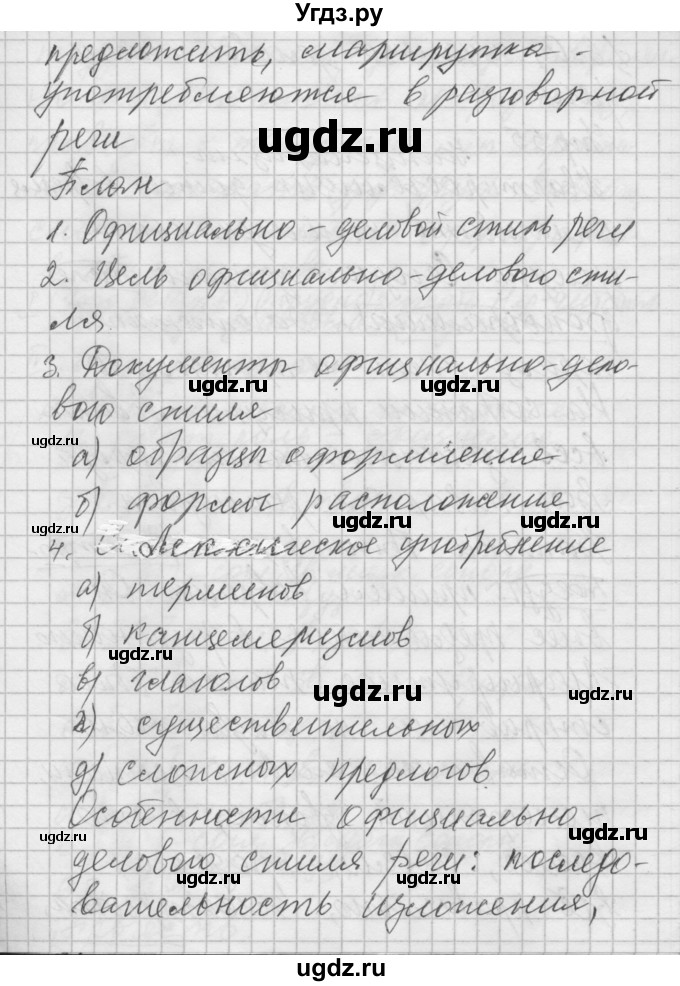 Угдз.ру
предложить, маршрутка -
употребляются в разговорной
ugdz.ru
речи
План
1. Официально - деловой стиль речи
2. Цель официально-делового сти-
ля
3. Документы официально-дело-
ugdz.ru ugdz.ru
вого стиля
ugdz.ru
а) образцы оформления
б) формы расположения
ugdz.ru ugdz.ru
4. Лексическое употребление
а) терминов
б) канцеляризмов
ugdz.ru ugdz.ru
в) глаголов
ugdz.ru
г) существительных
д) сложных предлогов
Особенности официально-
ugdz.ru ugdz.ru
делового стиля речи: последо-
ugdz.ru ugdz.ru
вательность изложения,
ugdz.ru